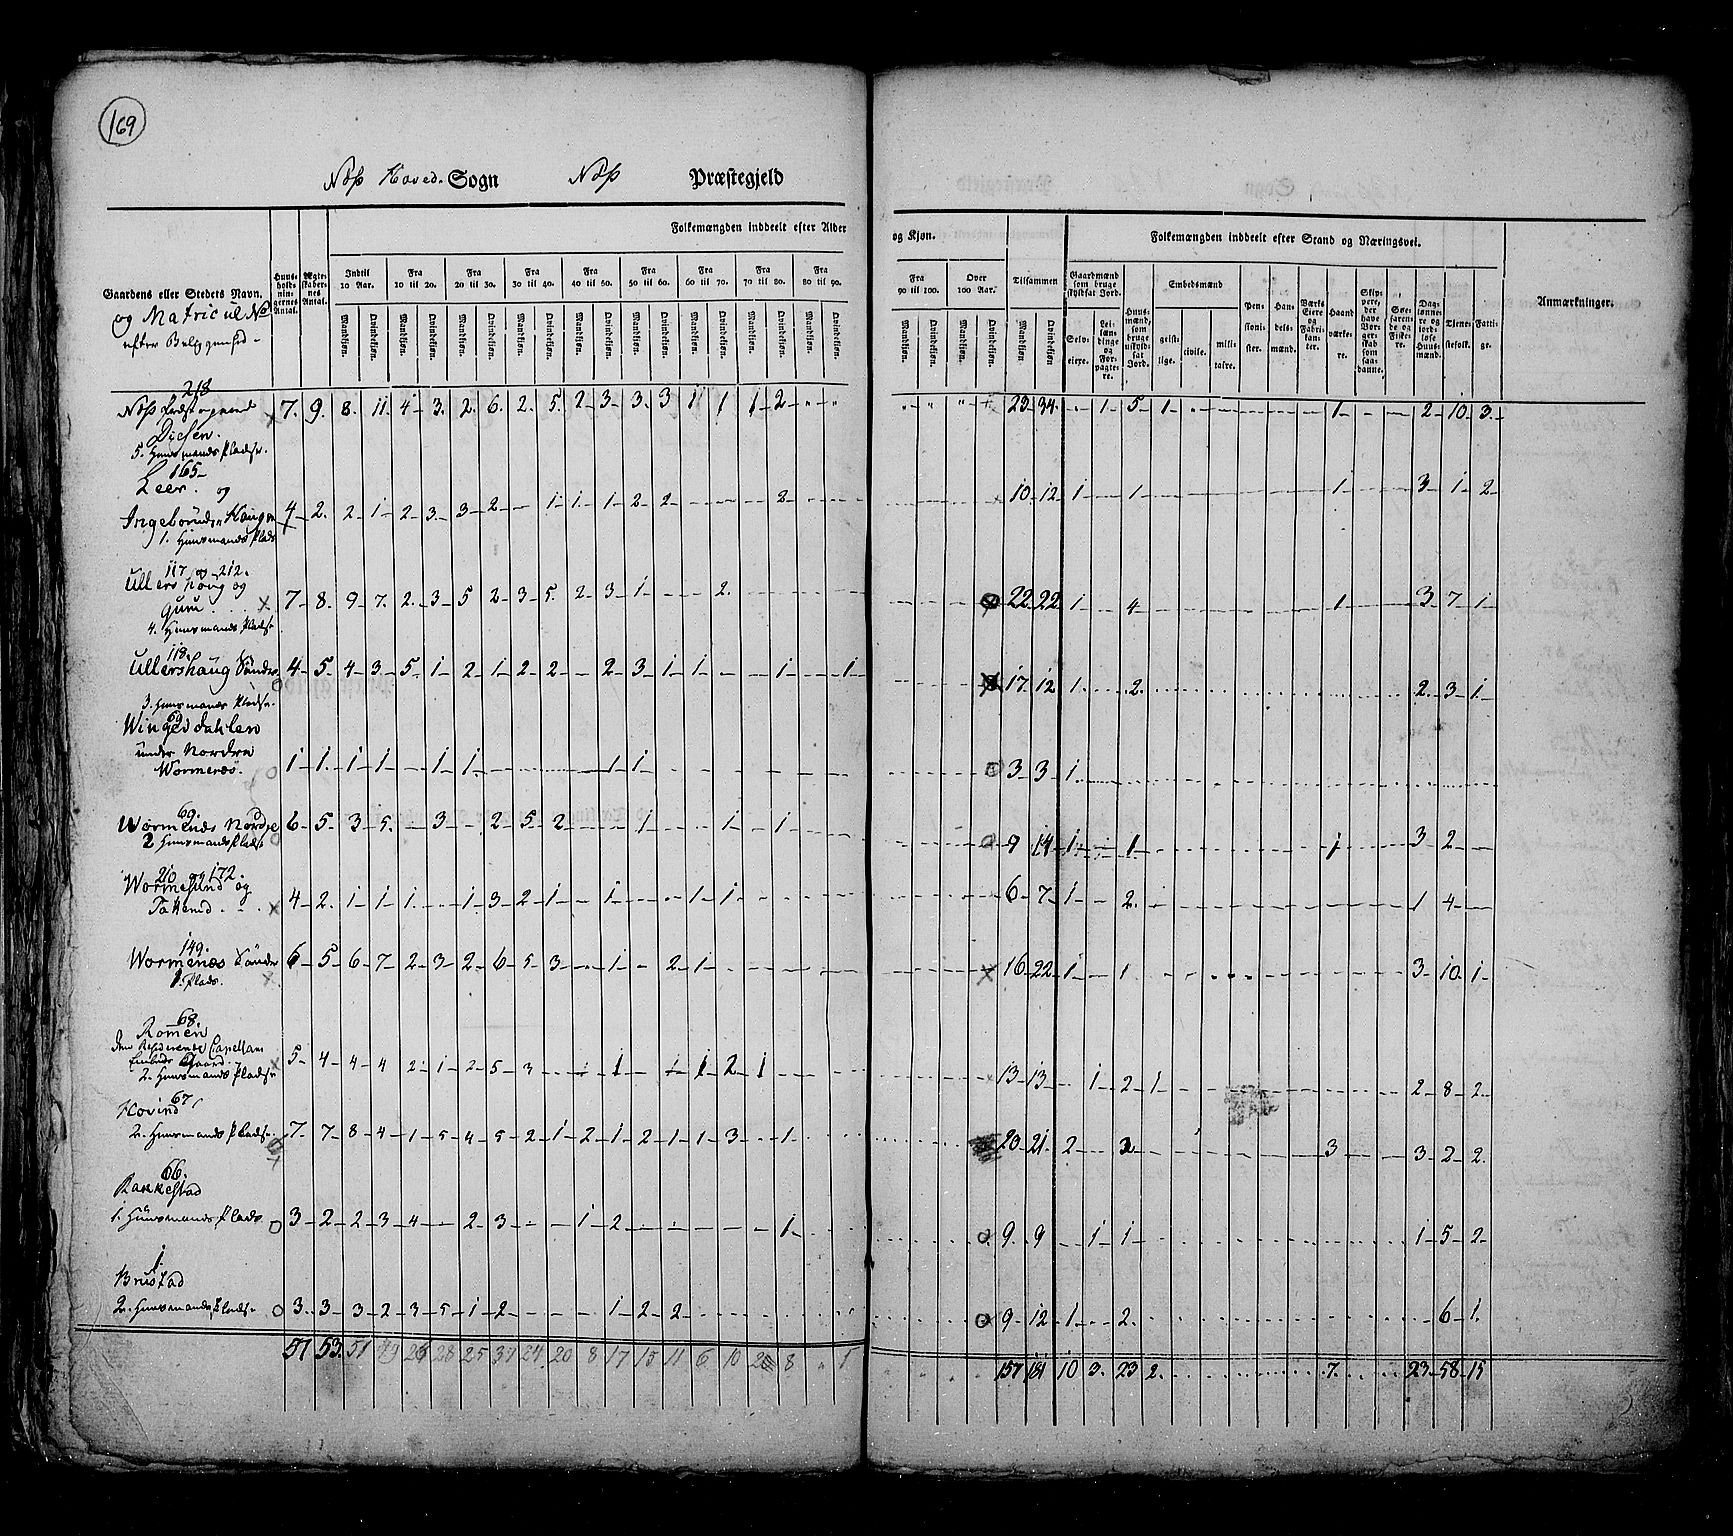 169
Næs Hoved- Sogn Næs Præstegjeld
Gaardens eller Stedets Navn.
og Matricul No
efter Beliggenhed -
Huus-holdnin-gernes Antal.
Ægte-skaber-nes Antal.
Folkemængden inddeelt efter Alder og Kjøn.
Indtil 10 Aar. Fra 10 til 20. Fra 20 til 30. Fra 30 til 40. Fra 40 til 50. Fra 50 til 60. Fra 60 til 70. Fra 70 til 80. Fra 80 til 90. Fra 90 til 100. Over 100 Aar. Tilsammen
Mandkjøn. Qvindekjøn.
Folkemængden inddeelt efter Stand og Næringsvei.
Gaardmænd som bruge skyldsat Jord.
Selv-eiere. Lei-læn-dinge og For-pagte-re.
Huus-mænd, som bruge uskyld-sat Jord.
Embedsmænd
geist-lige. civile. mili-taire.
Pen-sioni-ster.
Han-dels-mænd.
Værks-Eiere og Fabri-kan-ter.
Haand-værke-re.
Skip-pere, der have Bor-ger-skab som saa-danne.
Søe-faren-de og Fiske-re.
Dag-lønne-re og jord-løse Huus-mænd.
Tjene-stefolk.
Fatti-ge.
Anmærkninger.
218
Næs Præstegaard 7. 9. 8. 11. 4. 3. 2. 6. 2. 5. 2 3 3. 3 1 1 1 2 23 34. 1 5 1 1 2 10 3
Disen.
5. Huusmands Pladse.
165
Leer. og
Ingeborruds Haugen 4 2. 2 1 2 3. 3 2 1 1. 1 2 2 2 10 12 1 1 1 3 1 2
1. Huusmands Plads
117 og 212.
Ullershoug og
Guru 7 8. 9 7. 2. 3 5 2 3 5. 2 3 1 2. 22 22 1 4 1 3 7 1
4. Huusmands Pladse
118.
Ullershaug Søndre 4 5. 4 3. 5 1 2 1 2 2 2 3 1 1 1 1 17 12 1 2 2 3 1
3. Huusmands Pladse.
Wingersdahlen
under Nordre
Wormenæs. 1 1. 1 1 1 1 1 1 3 3 1
69.
Wormenæs Nordre 6 5. 3 5. 3 2 5 2 1 1 1 9 14 1 1 1 3 2
2 Huusmands Pladse
210 og 172.
Wormesund og
Takerud 4 2. 1 1 1. 1 3 2 1 1 1 1 6 7 1 2. 1 4
149.
Wormenæs Søndre 6 5 6 7 2 3 2 6 5 3 1 2 1 16 22 1 1 3 10 1
1. Plads.
68.
Romen
den residerende Capellans
Embeds Gaard. 5 4 4 4 2 1 2 5 3 1 1 1 1 2 1 13 13 1 2 1 2 8 2
2. Huusmands Pladse
67
Hovind
2. Huusmands Pladse 7 7 8 4 1 5 4 5 2 1 2 1 2 1 1 3 1 20 21 2 3 3 2 2.
66.
Rakkestad
1. Huusmands Plads 3 2 2 3 4 2 3 1 2 1 9 9 1 1 1 5 2
1.
Brustad
2. Huusmands Pladse 3 3 3 2 3 5 1 2 1 2 2 9 12 1 2 6 1.
57 53. 51 49 26 28 25 37 24 20 8 17 15 11 6 10 2 8 1 157 181 10 3. 23 2. 7. 23 58 15